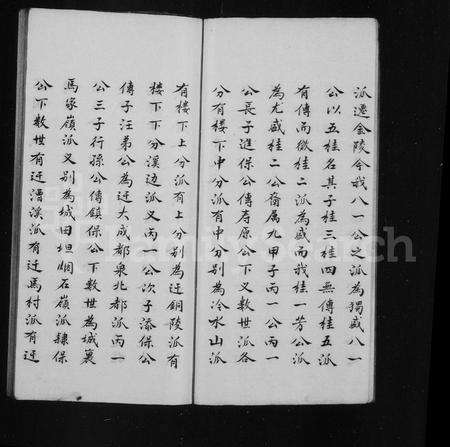 派遷金陵今我八一公之派為獨盛八一
公以五桂名其子桂三桂四無傳桂五派
有傳而微桂二派為盛而我桂一芳公派
為尤盛桂二公裔属九甲子丙一公丙一
公長子進保公傳存原公下又数世派各
分有楼下中分派有中分别為冷水山派
有楼下上分派有上分别為迁銅陵派有
楼下下分溪边派又丙一公次子添保公
傳子汪弟公為迁大成都泉北都派丙一
公三子行孫公傳鎮保公下数世為城裏
馬家嶺派又别為城田坦烟在嶺派隸保
公下数世有迁漕溪派有迁馬村派有迁